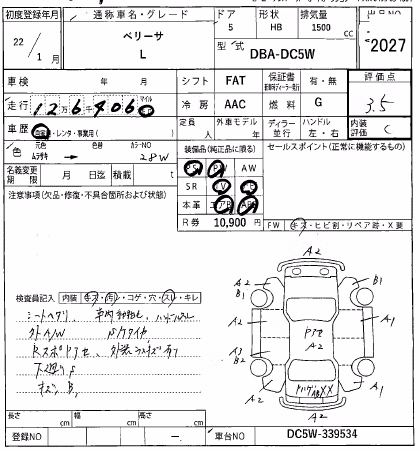 初度登録年月 通称車名・グレード ドア 形状 排気量 出品NO
22 / 1 月 ベリーサ L 5 HB 1500 cc
型式 DBA-DC5W 2027
車検 年 月 シフト FAT 保証書 有・無 評価点
走行 12万6千406 マイル 冷房 AAC 燃料 G 3.5
車歴 自家用・レンタ・事業用( ) 定員 人 外車モデル 年 ディーラー 並行 ハンドル 左・右 内装評価 C
色 元色 ムラサキ → 色替 カラーNO 28W 装備品(純正品に限る) セールスポイント(正常に機能する装備)
名義変更期限 月 日迄 積載 t PS PW AW
注意事項(欠品・修復・不具合箇所および状態) SR
本革 エアB
R券 10,900 円 FW キズ・ヒビ割・リペア跡・X要
検査員記入 内装 キズ・汚レ・コゲ・穴・スレ・キレ
シートヘタリ
外A/W
下廻りS
A2
A2 B1 B1 A2
A2 PアセA2 A1
A3 B2
A2 XX A1
A2
長さ cm 幅 cm 高さ cm
登録NO ― 車台NO DC5W-339534